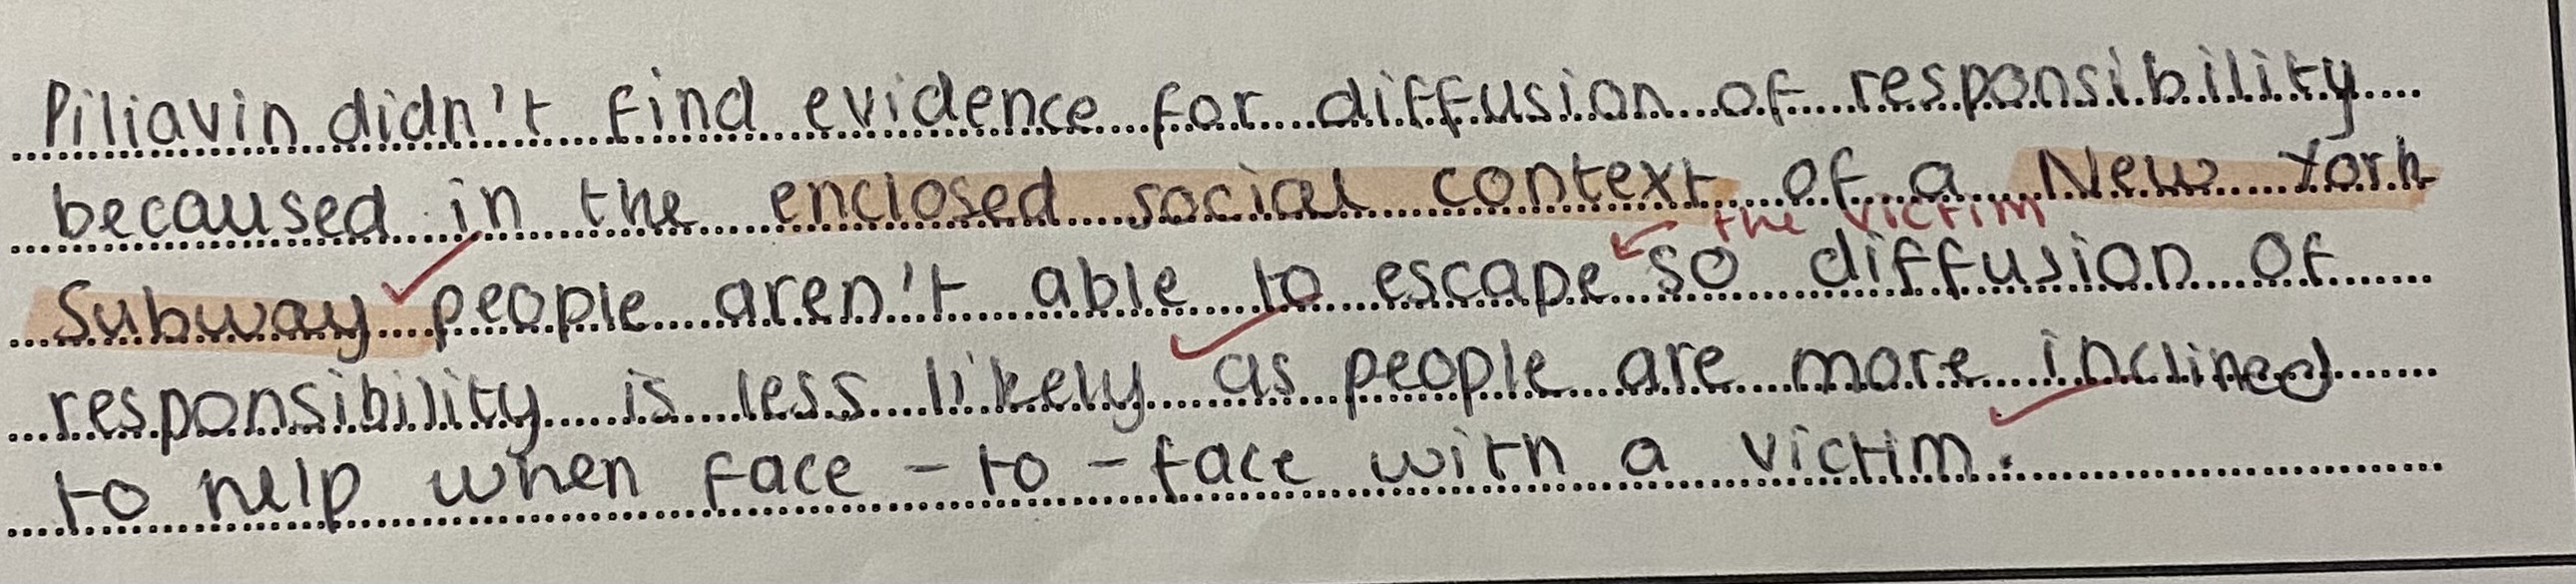 Piliavin didn't find evidence for diffusion of responsibility
becaused in the enclosed social context of a New York
the victim
Subway people aren't able to escape so diffusion of
responsibility is less likely as people are more inclined
to help when face-to-face with a victim.